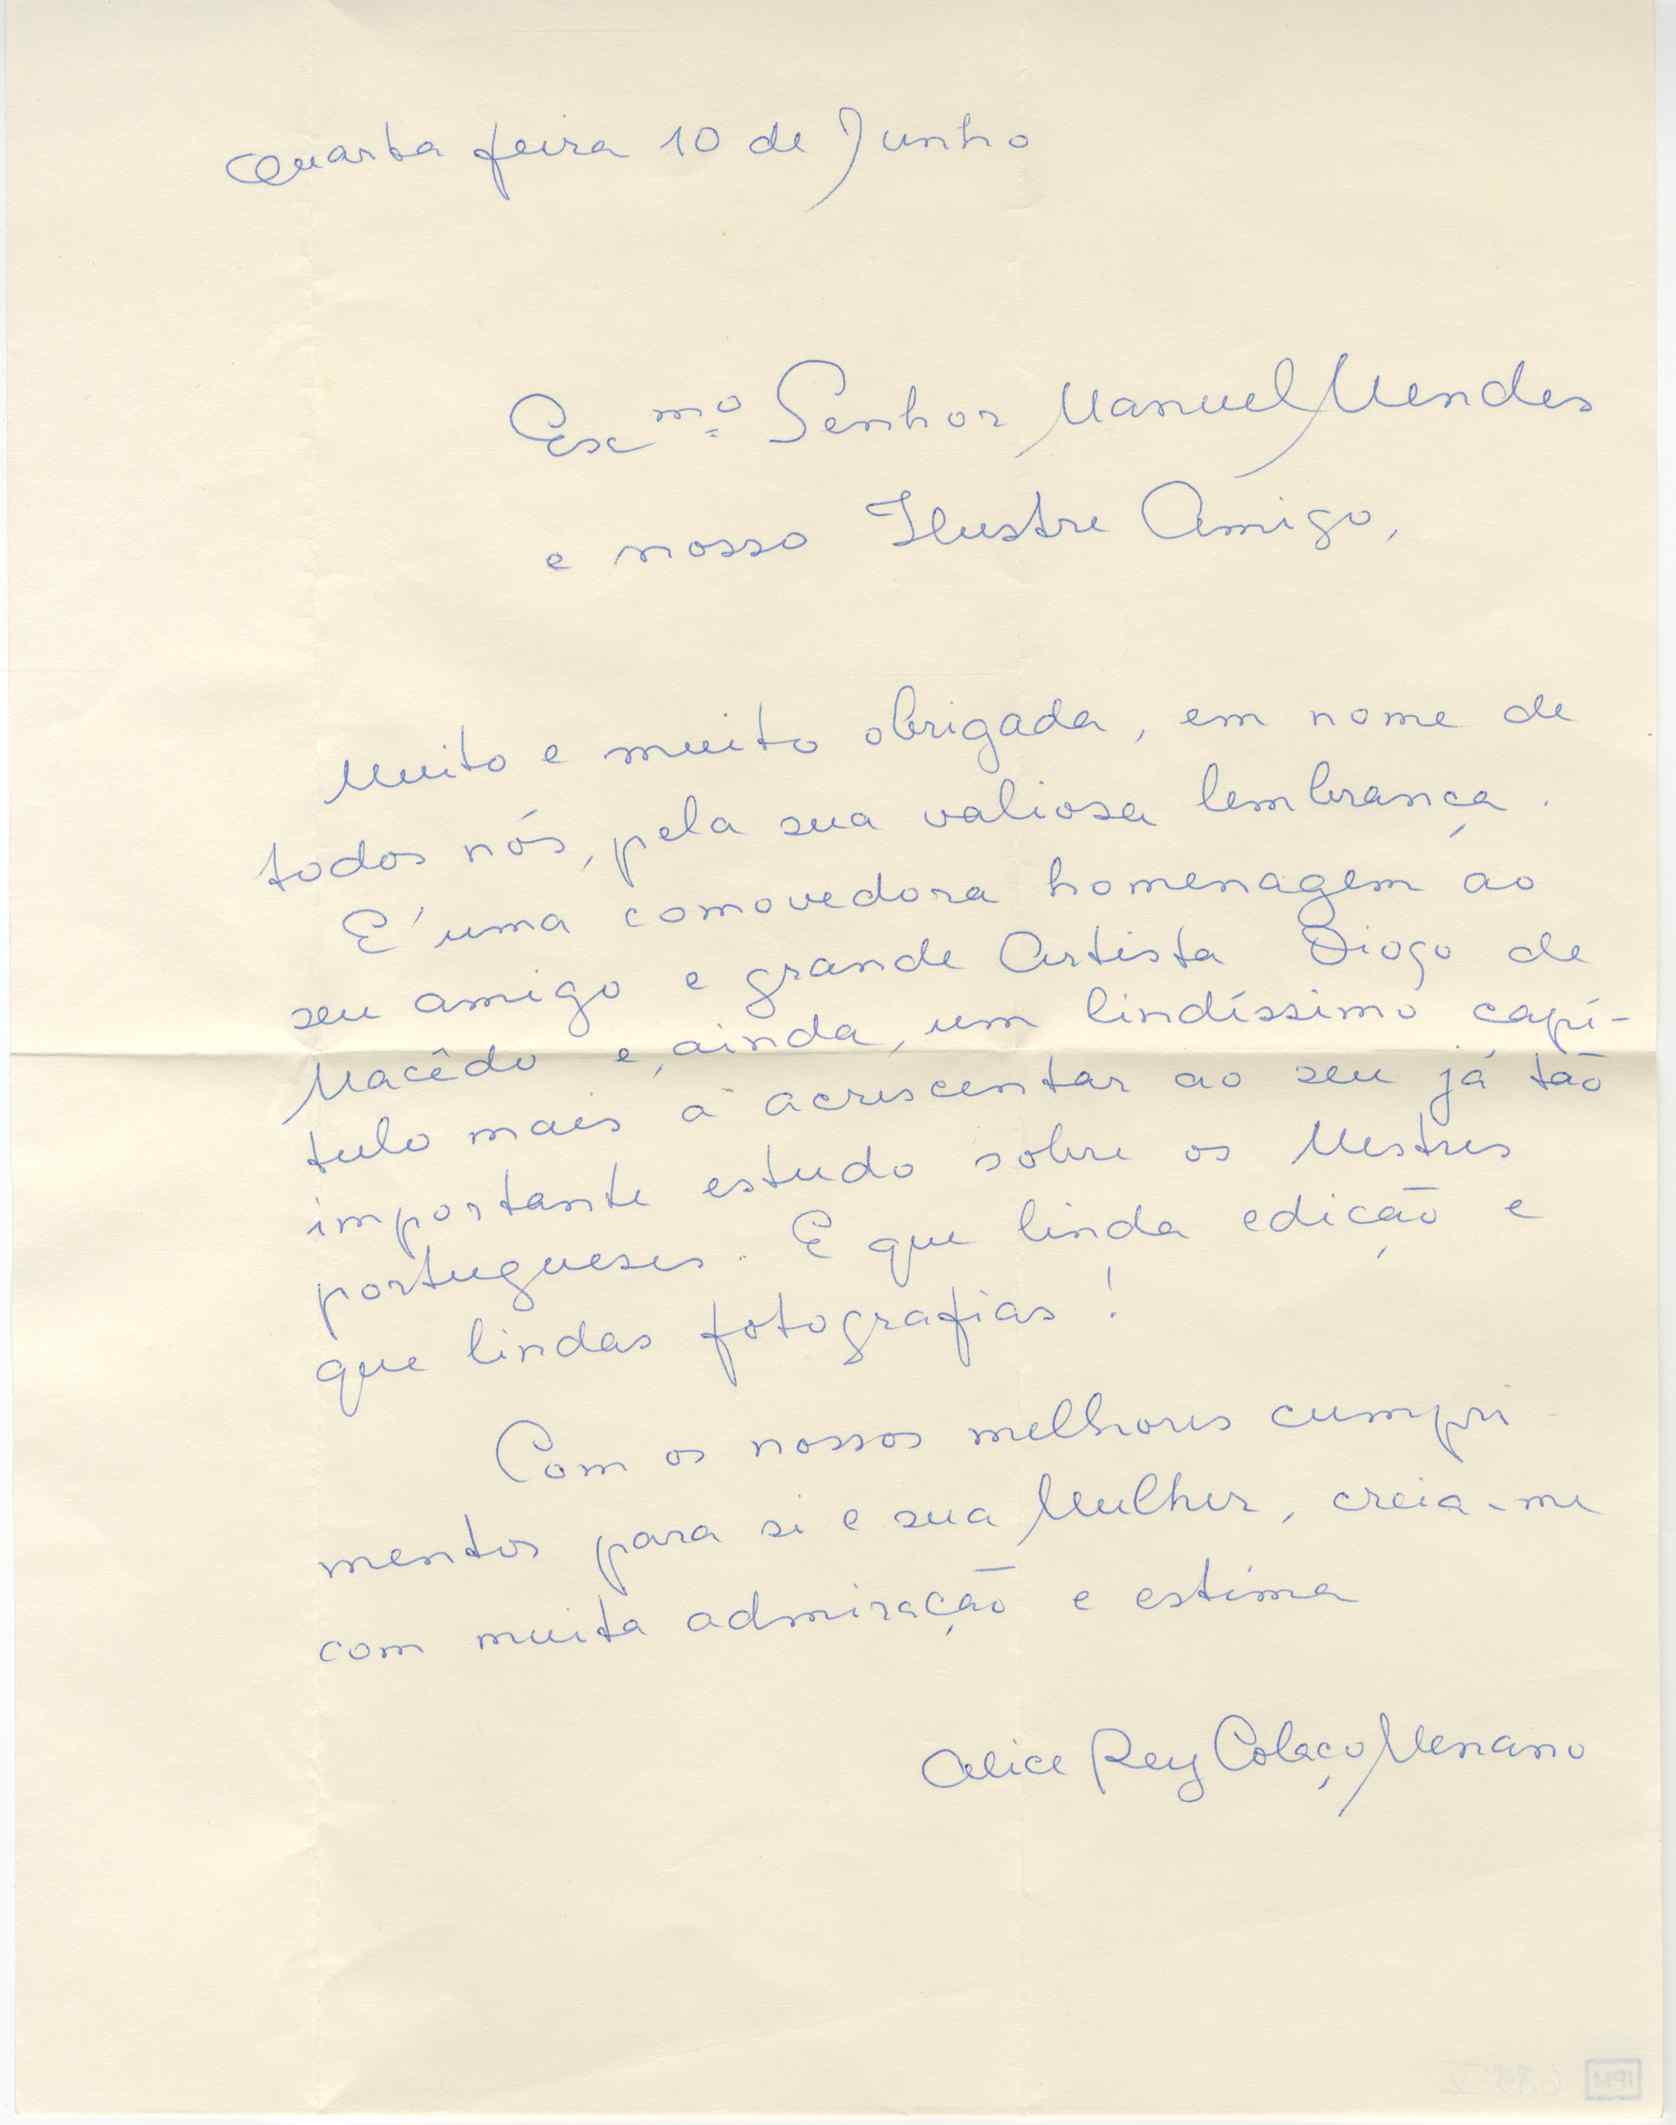 Quarta feira 10 de Junho
Exmº Senhor Manuel Mendes
e nosso Ilustre Amigo,
Muito e muito obrigada, em nome de
todos nós, pela sua valiosa lembrança.
E' uma comovedora homenagem ao
seu amigo e grande Artista Diogo de
Macêdo e, ainda, um lindíssimo capí-
tulo mais a acrescentar ao seu já tão
importante estudo sobre os Mestres
portugueses. E que linda edição e
que lindas fotografias!
Com os nossos melhores cumpri-
mentos para si e sua Mulher, creia-me
com muita admiração e estima
Alice Rey Colaço Menano